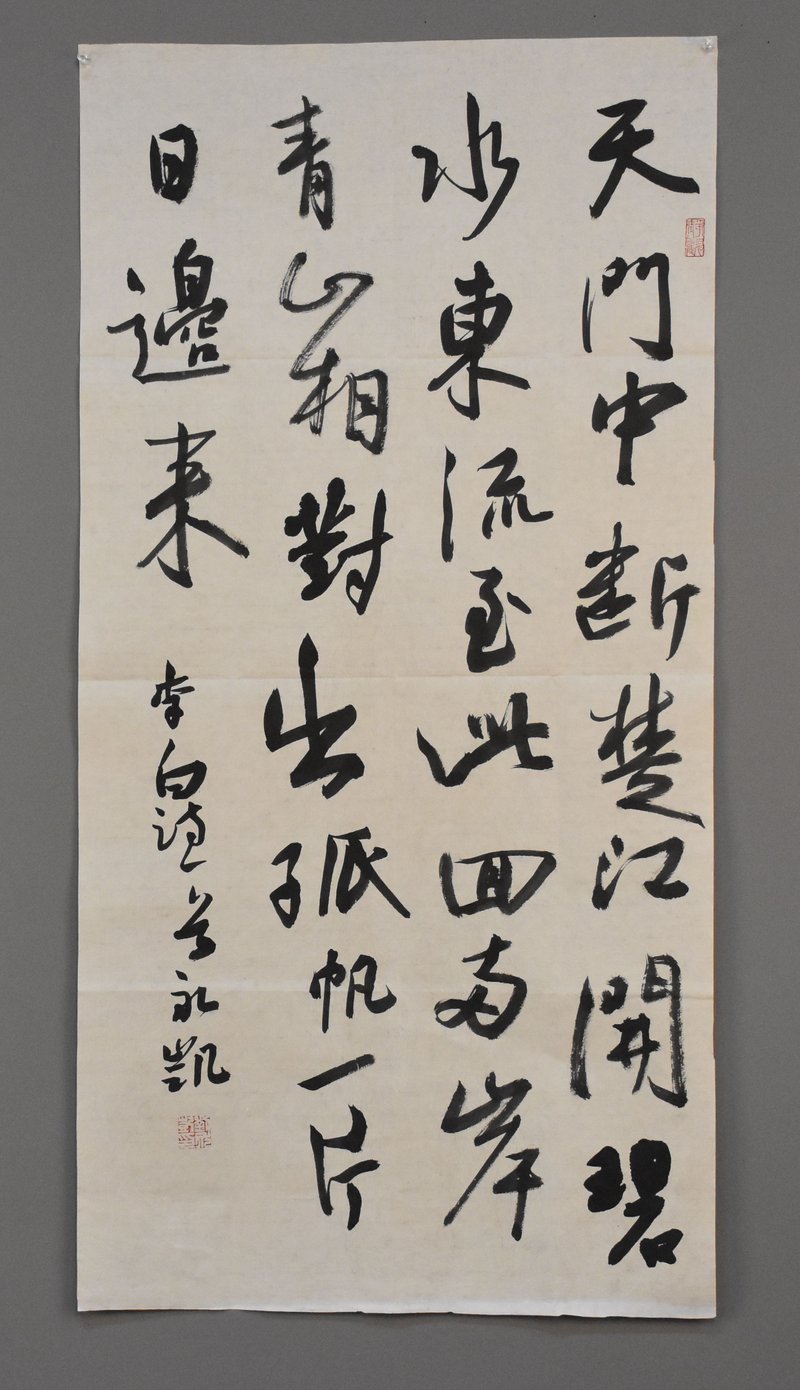 天門中断楚江開碧
水東流至此回兩岸
青山相對出孤帆一片
日邊来
李白詩 永凱